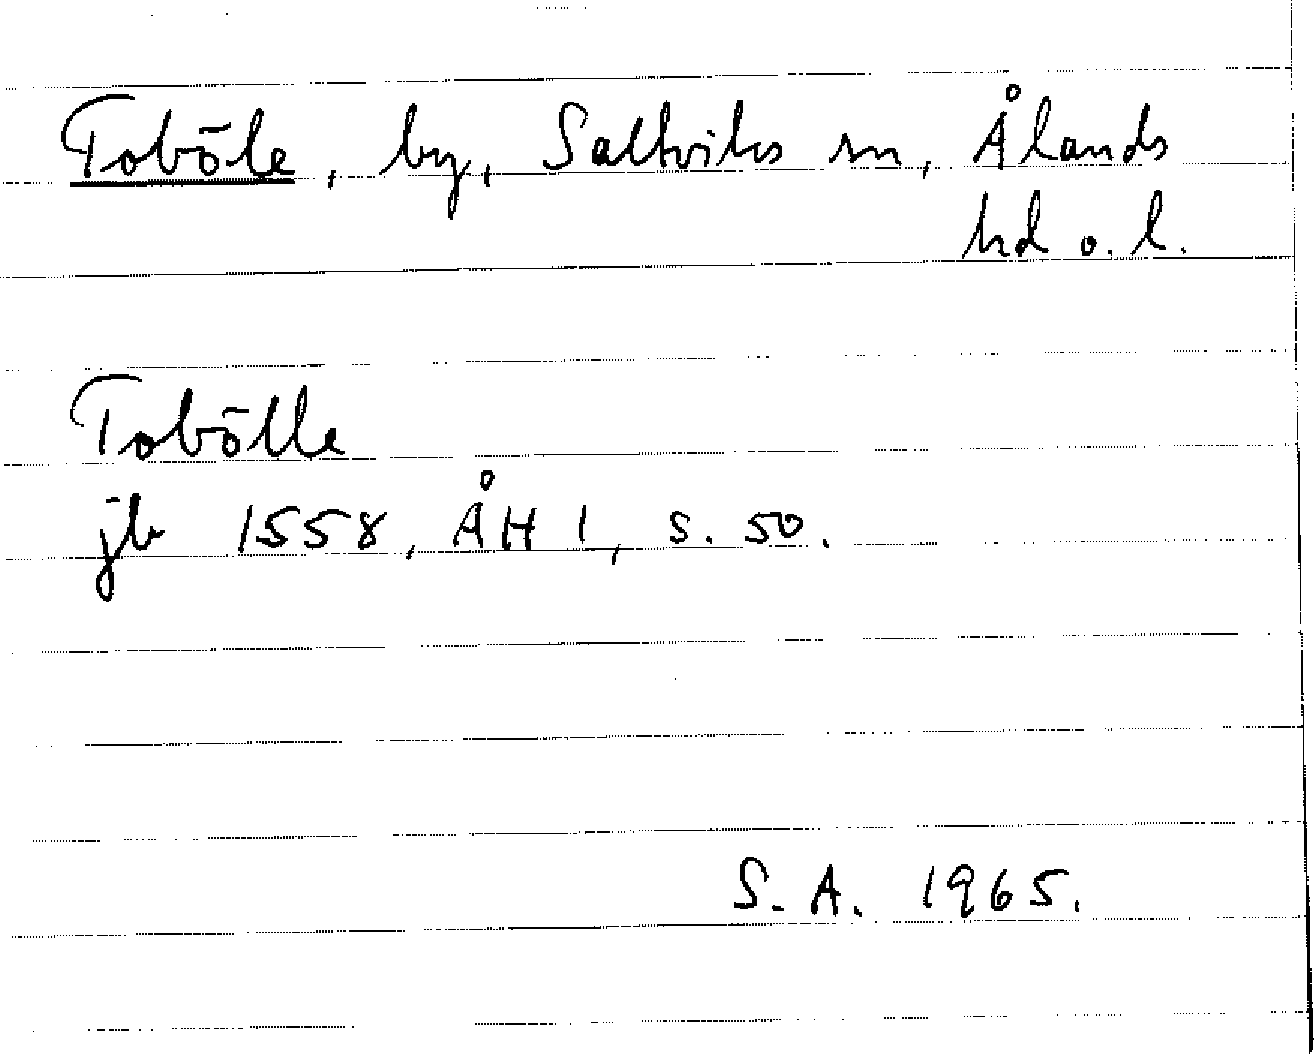 Toböle, by, Saltviks sn, Ålands
hd o. l.
Tobölle
jb 1558, ÅH 1, s. 50.
S. A. 1965.